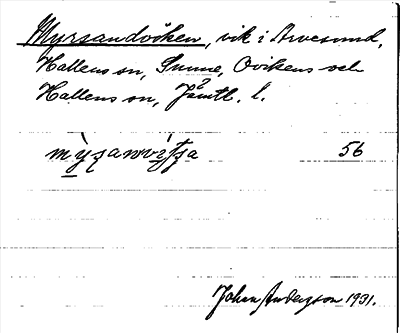 Myrsandviken, vik i Arvesund,
Hallens sn, Sunne, Ovikens och
Hallens sn, Jämtl. l.
56
Johan Anderson 1931.